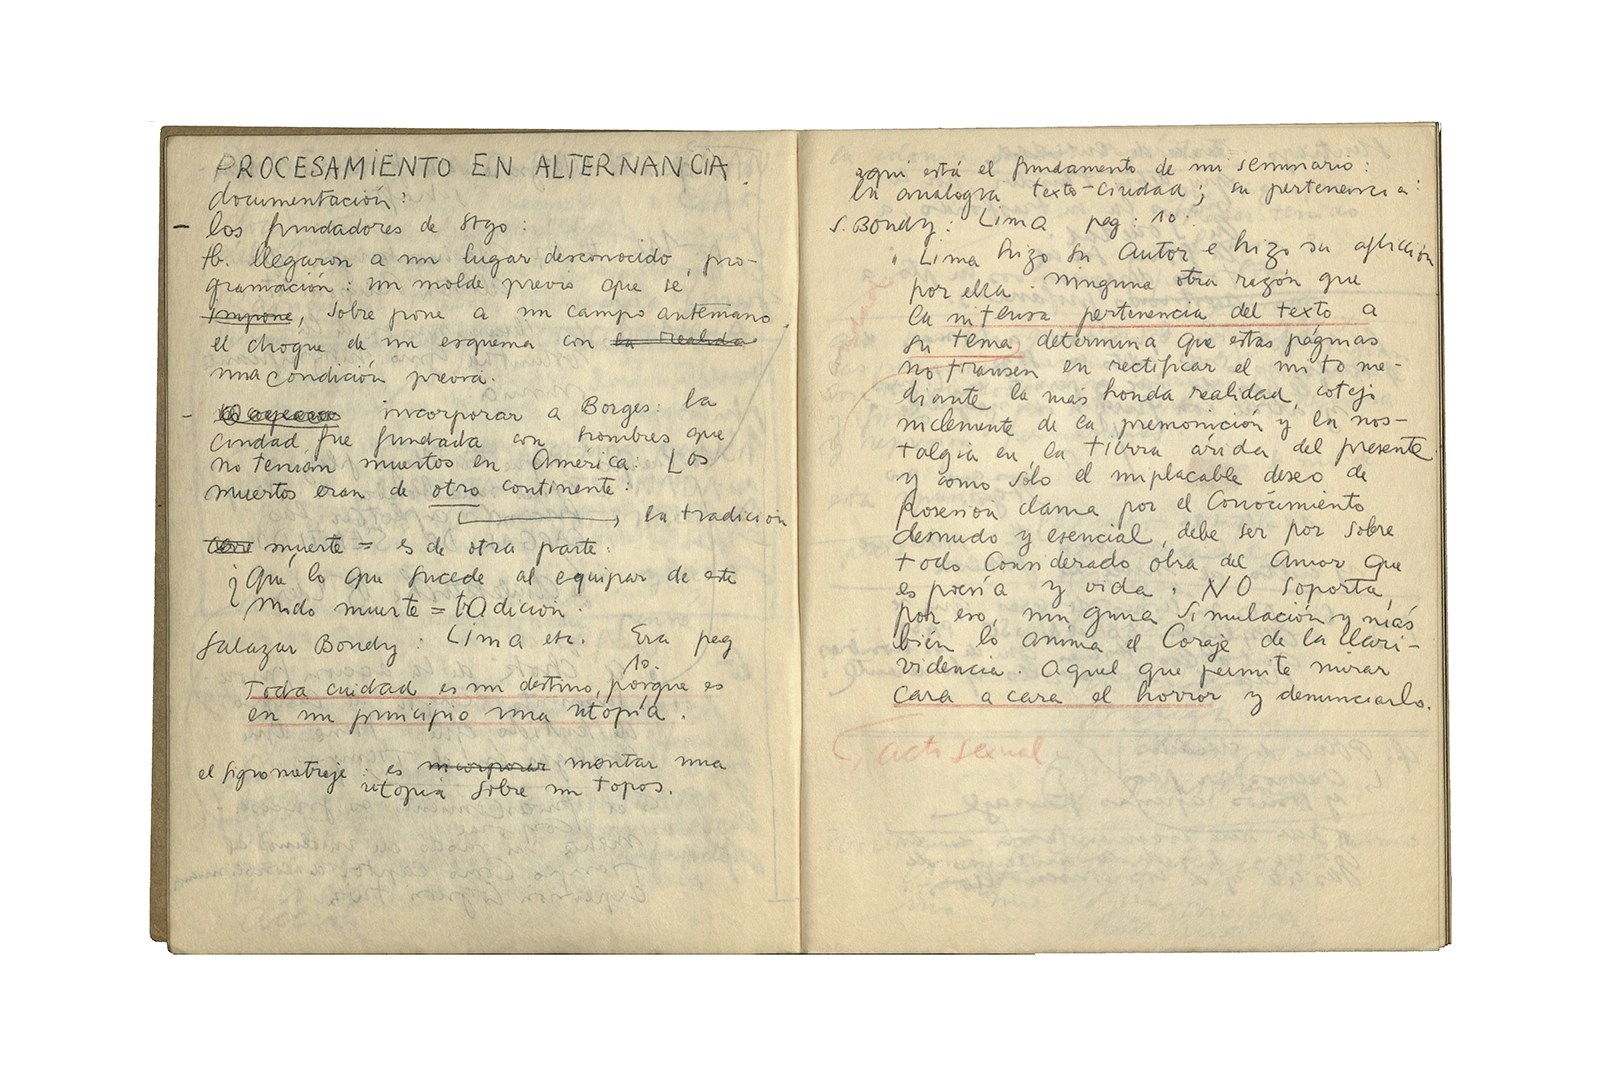 PROCESAMIENTO EN ALTERNANCIA.
documentación:
- los fundadores de stgo:
llegaron a un lugar desconocido, pro-
gramación: un molde previo que se
impone, sobre pone a un campo antemano
el choque de un esquema con la realida
una condición previa.
- incorporar a Borges: la
ciudad fue fundada con hombres que
no tenían muertos en América: Los
muertos eran de otro continente:
la tradición
muerte = es de otra parte:
¿Qué lo que sucede al equipar de este
modo muerte = tradición.
Salazar Bondy: Lima etc. Era pag
10.
Toda cuidad es un destino, porque es
en un principio una utopía.
: es incorporar montar una
utopia sobre un topos.
aquí está el fundamento de mi seminario:
la analogía texto-ciudad; su pertenencia:
S. Bondy: Lima pag: 10.
"Lima hizo su Autor e hizo su aflicción
por ella. ninguna otra razón que
la intensa pertenencia del texto a
su tema determina que estas páginas
no transen en rectificar el mito me-
diante la más honda realidad, cotej
inclemente de la premonición y la nos-
talgia en la tierra árida del presente
y como sólo el implacable deseo de
posesión clama por el Conocimiento
desnudo y esencial, debe ser por sobre
todo Considerado obra del Amor que
es poesía y vida. NO soporta,
por eso, ninguna simulación y más
bién lo anima el Coraje de la clari-
videncia. Aquel que permite mirar
cara a cara el horror y denunciarlo.
acto sexual